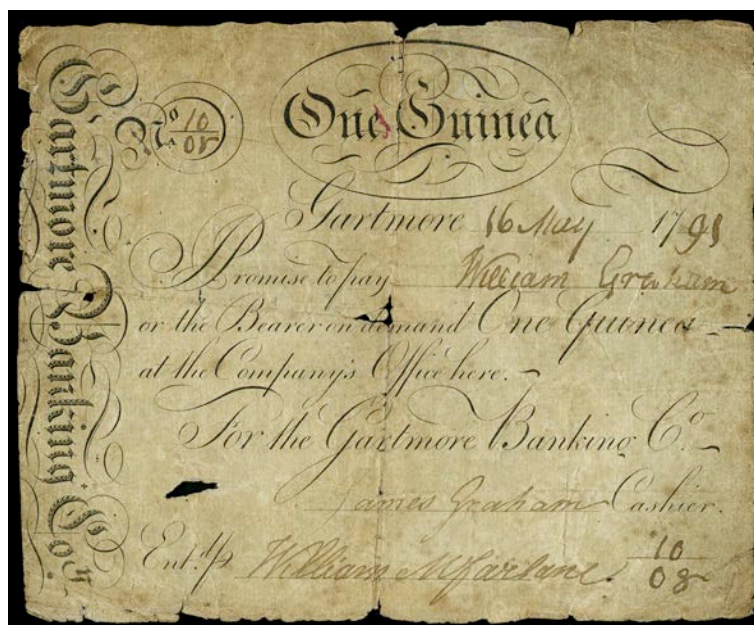 Gartmore Banking Co.
No 10/08
One Guinea
Gartmore 16 May 1791
Promise to pay William Graham
or the Bearer on demand One Guinea
at the Company's Office here.
For the Gartmore Banking Co
James Graham Cashier.
Ent.d p William McFarlane. 10/08